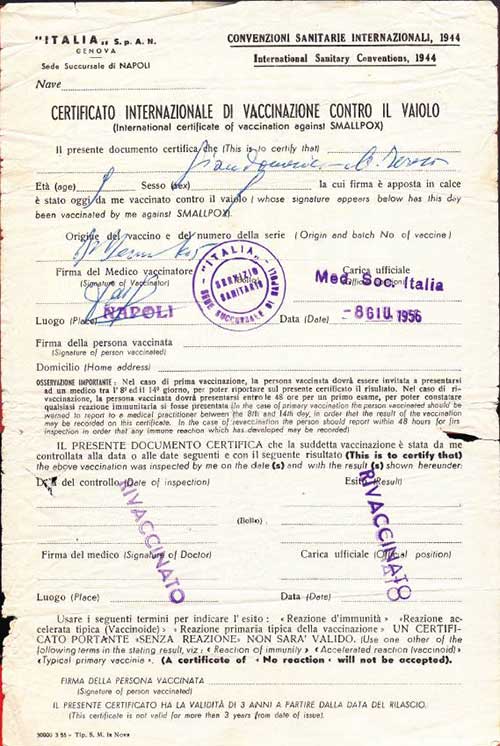 "ITALIA„ S.p.A.N.
GENOVA
Sede Succursale di NAPOLI
Nave
CONVENZIONI SANITARIE INTERNAZIONALI, 1944
International Sanitary Conventions, 1944
CERTIFICATO INTERNAZIONALE DI VACCINAZIONE CONTRO IL VAIOLO
(International certificate of vaccination against SMALLPOX)
Il presente documento certifica che (This is to certify that)
Età (age) Sesso (sex) la cui firma è apposta in calce
è stato oggi da me vaccinato contro il vaiolo ( whose signature appears below has this day
been vaccinated by me against SMALLPOX).
Origine del vaccino e del numero della serie ( Origin and batch No of vaccine )
"ITALIA„
SERVIZIO
SANITARIO
SEDE SUCCURSALE DI NAPOLI
Firma del Medico vaccinatore
(Signature of Vaccinator)
Carica ufficiale
Med. Soc. Italia
NAPOLI
Luogo (Place)
Data (Date)
-8 GIU. 1956
Firma della persona vaccinata
(Signature of person vaccinated)
Domicilio (Home address)
OSSERVAZIONE IMPORTANTE : Nel caso di prima vaccinazione, la persona vaccinata dovrà essere invitata a presentarsi
ad un medico tra l'8° ed il 14° giorno, per poter riportare sul presente certificato il risultato. Nel caso di ri-
vaccinazione, la persona vaccinata dovrà presentarsi entro le 48 ore per un primo esame, per poter constatare
qualsiasi reazione immunitaria si fosse presentata (In the case of primary vaccination the person vaccinated should be
warned to report to a medical practitioner between the 8th and 14th day, in order that the result of the vaccination
may be recorded on this certificate. In the case of revaccination the person should report within 48 hours for firs
inspection in order that any immune reaction which has developed may be recorded)
IL PRESENTE DOCUMENTO CERTIFICA che la suddetta vaccinazione è stata da me
controllata alla data o alle date seguenti e con il seguente risultato (This is to certify that)
the above vaccination was inspected by me on the date (s) and with the result (s) shown hereunder:
del controllo (Date of inspection)
Esito (Result)
RIVACCINATO
RIVACCINATO
(Bollo)
Firma del medico (Signature of Doctor)
Carica ufficiale (Official position)
Luogo (Place)
Data (Date)
Usare i seguenti termini per indicare l'esito : « Reazione d'immunità » «Reazione ac-
celerata tipica (Vaccinoide) » «Reazione primaria tipica della vaccinazione » UN CERTIFI-
CATO PORTANTE «SENZA REAZIONE» NON SARA' VALIDO. (Use one other of the
following terms in the stating result, viz : « Reaction of immunity » « Accelerated reaction (vaccinoid) »
«Typical primary vaccinia ». (A certificate of « No reaction « will not be accepted).
FIRMA DELLA PERSONA VACCINATA
(Signature of person vaccinated)
IL PRESENTE CERTIFICATO HA LA VALIDITÀ DI 3 ANNI A PARTIRE DALLA DATA DEL RILASCIO.
(This certificate is not valid for more than 3 years from date of issue).
30000 3 55 - Tip. S. M. la Nova